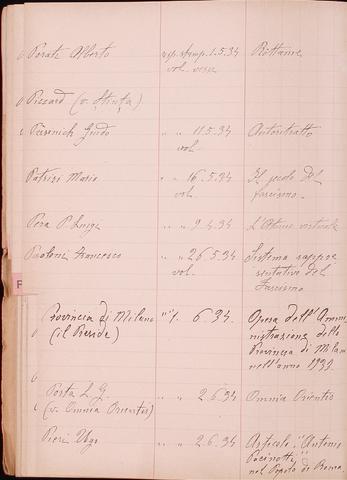 Porate Alberto risp. stamp. 1.5.34 Rottame
vol. verse
Pizzard (v. Stinta)
Présenich Guido " " 11.5.34 Autoritratto
vol.
Patrizi Mario " " 16.5.34 Il secolo del
vol. fascismo.
Pera P. Luigi " " 9.4.34 L'Ottimo virtuale
Paoloni Francesco " " 26.5.34 Sistema rappre
vol. sentativo del
Fascismo
P
Provincia di Milano " " 1. 6.34. Opera dell'Ammi
(il Preside) nistrazione della
Provincia di Milano
nell'anno 1933.
Porta L. G. " " 2.6.34 Omnia Orientis
(v. Omnia Orientis)
Pieri Ugo " " 2.6.34 Articolo: "Antonio
Pacinotti"
nel Popolo di Roma